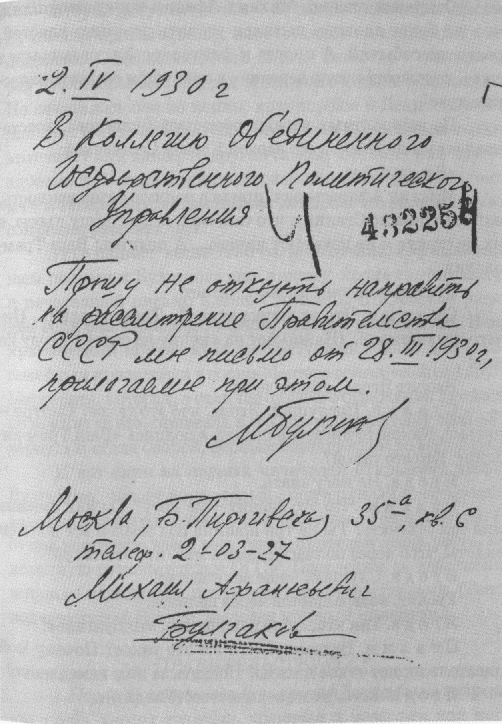 2. IV 1930 г
В Коллегию Об'единенного
Государственного Политического
Управления
432256
Прошу не отказать направить
на рассмотрение Правительства
СССР мое письмо от 28. III 1930 г,
прилагаемое при этом.
МБулгаков
Москва, Б. Пироговская, 35-а, кв. 6
телеф. 2-03-27
Михаил Афанасьевич
Булгаков